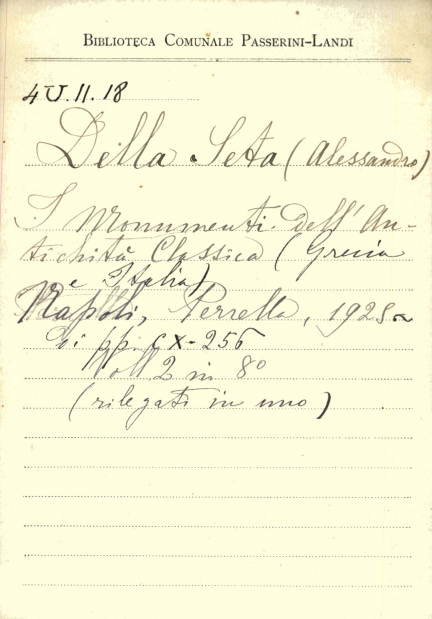 BIBLIOTECA COMUNALE PASSERINI-LANDI
4U.11.18
Della Seta (Alessandro)
I Monumenti dell'An-
tichità Classica (Grecia
e Italia)
Napoli, Perrella, 1928
di pp. CX-256
Voll. 2 in 8º
(rilegati in uno)